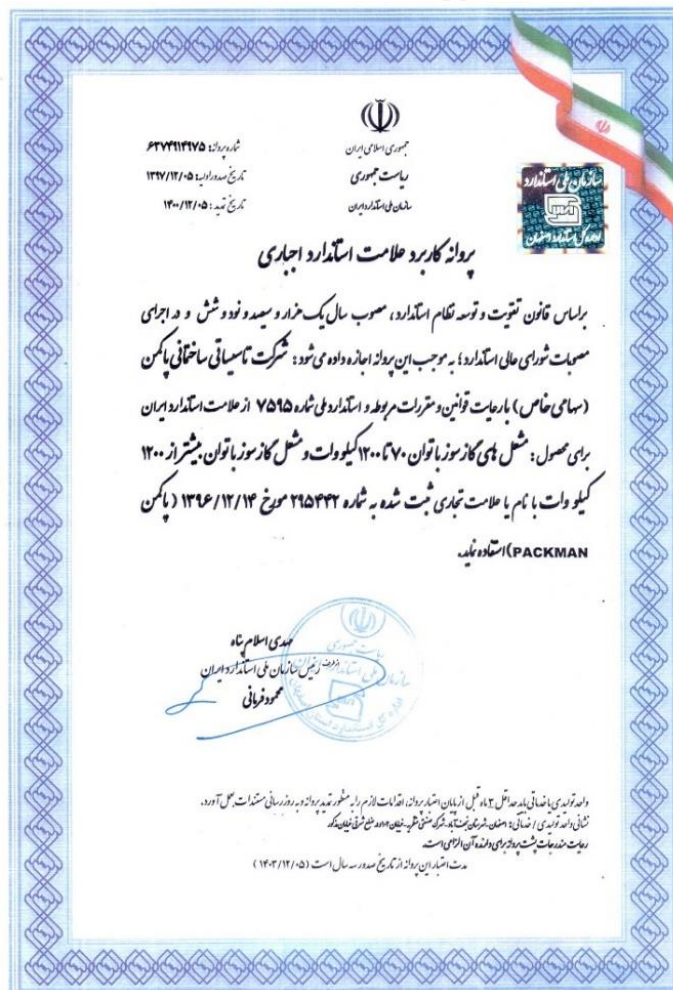 جمهوری اسلامی ایران
ریاست جمهوری
سازمان ملی استاندارد ایران
شماره پروانه: ۶۲۷۴۹۱۴۹۷۵
تاریخ صدور اولیه: ۱۳۹۷/۱۲/۰۵
تاریخ تمدید: ۱۴۰۰/۱۲/۰۵
سازمان ملی استاندارد
اداره کل استاندارد اصفهان
پروانه کاربرد علامت استاندارد اجباری
براساس قانون تقویت و توسعه نظام استاندارد، مصوب سال یک هزار و سیصد و نود و شش و در اجرای
مصوبات شورای عالی استاندارد؛ به موجب این پروانه اجازه داده می شود: شرکت تاسیساتی ساختمانی پاکمن
(سهامی خاص) با رعایت قوانین و مقررات مربوطه و استاندارد ملی شماره ۷۵۹۵ از علامت استاندارد ایران
برای محصول: مشعل های گازسوز با توان ۷۰ تا ۱۲۰۰ کیلو وات و مشعل گازسوز با توان بیشتر از ۱۲۰۰
کیلو وات با نام یا علامت تجاری ثبت شده به شماره ۲۹۵۴۴۲ مورخ ۱۳۹۶/۱۲/۱۴ (پاکمن
PACKMAN) استفاده نماید.
مهدی اسلام پناه
از طرف رئیس سازمان ملی استاندارد ایران
محمود فرمانی
ریاست جمهوری
سازمان ملی استاندارد ایران
اداره کل استاندارد استان اصفهان
واحد تولیدی یا خدماتی باید حداقل ۳ ماه قبل از پایان اعتبار پروانه، اقدامات لازم را به منظور تمدید پروانه و به روز رسانی مستندات بعمل آورد.
نشانی واحد تولیدی / خدماتی: اصفهان، شهرستان نجف آباد، شرک صنعتی
رعایت مندرجات پشت پروانه برای دارنده آن الزامی است.
مدت اعتبار این پروانه از تاریخ صدور سه سال است (۱۴۰۳/۱۲/۰۵)